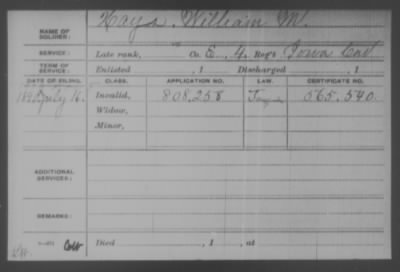 NAME OF SOLDIER: Hays, William M.
SERVICE: Late rank, Co. E, 4 Reg't Iowa Cav
TERM OF SERVICE: Enlisted , 1 Discharged , 1
DATE OF FILING. CLASS. APPLICATION NO. LAW. CERTIFICATE NO.
July 16. Invalid, 808.258 565.540.
Widow,
Minor,
ADDITIONAL SERVICES:
REMARKS:
Died , 1 , at